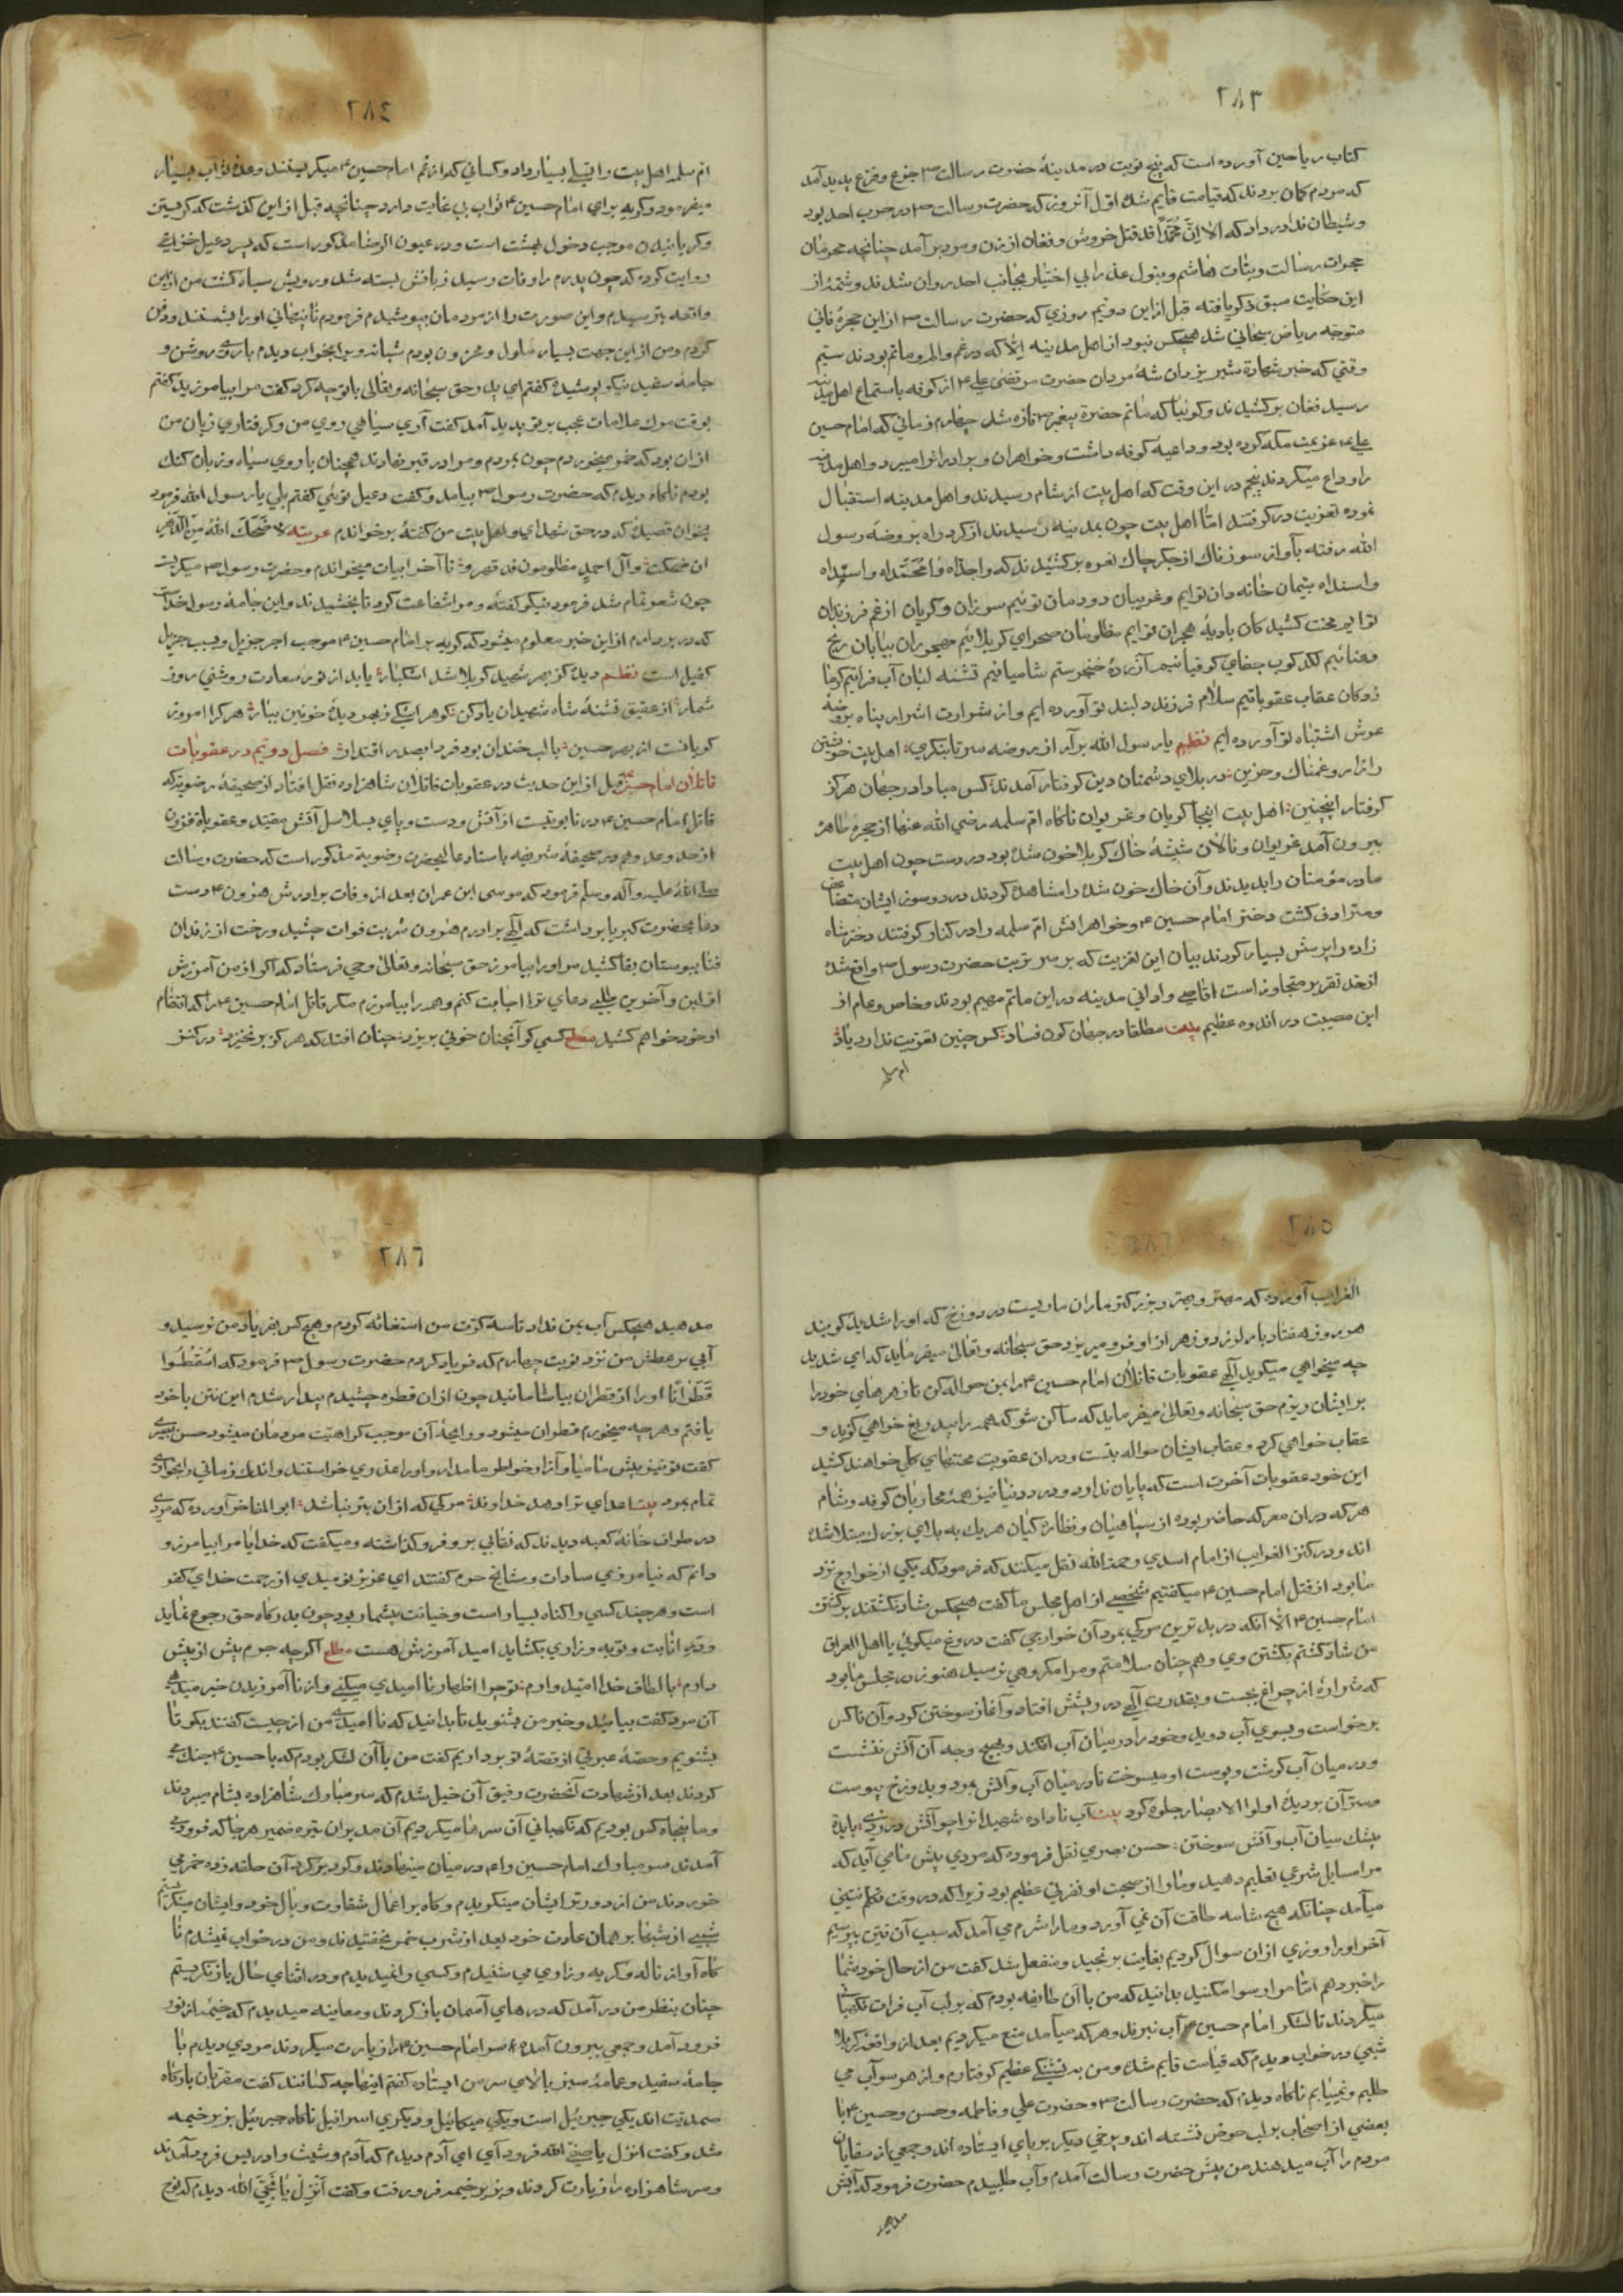 ٢٨٣
کتاب ریاحین آورده است که پنج نوبت در مدینهٔ حضرت رسالت ص جزع و فزع پدید آمد
که مردم کمان بردند که قیامت قایم شد اول آنروز که حضرت رسالت ص در حرب احد بود
و شیطان ندا در داد که الا اِنَّ مُحَمَّداً قد قتل خروش و فغان از زن و مرد برآمد چنانچه محرمان
حجرات رسالت و بنات هاشم و بتول عذرا بی اختیار بجانب احد روان شدند و شمهٔ از
این حکایت سبق ذکر یافته قبل ازین دوّیم روزی که حضرت رسالت ص ازین حجرهٔ فانی
متوجه ریاض سبحانی شد هیچکس نبود از اهل مدینه اِلّا که در غم و الم و ماتم بودند سیّم
وقتی که خبر شهادة شیر یزدان شهٔ مردان حضرت مرتضی علی ع از کوفه باستماع اهل مدینه
رسید فغان برکشیدند و کوئیا که ماتم حضرة پیغمبر ص تازه شد چهارم زمانی که امام حسین
علی ع عزیمت مکه کرده بود و داعیهٔ کوفه داشت و خواهران و برادرانرا میبرد و اهل مدینه
را وداع میکردند پنجم در این وقت که اهل بیت از شام رسیدند و اهل مدینه استقبال
نموده تعزیت در کرفتند امّا اهل بیت چون بمدینه رسیدند از کرد راه بروضهٔ رسول
الله رفته بآواز سوزناک از جکر چاک نعره برکشیدند که واجداه وا مُحَمَّداه و اسیّداه
واسنداه یتیمان خانه دان توایم و غریبان دودمان توئیم سوزان و کریان از غم فرزندان
توایم محنت کشیدکان بادیهٔ هجران توایم مظلومان صحرای کربلائیم مهجوران بیابان رنج
و عنائیم لکدکوب جفای کوفیانیم آزردهٔ خنجر ستم شامیانیم تشنه لبان آب فراتیم کرما
زدکان عقاب عقوباتیم سلام فرزند دلبند تو آورده ایم و از شرارت اشرار پناه بروضهٔ
عرش اشتباه تو آورده ایم نظم یا رسول الله برآر از روضه سر تا بنکری: اهل بیت خویشتن
را زار و غمناک و حزین: در بلای دشمنان دین کرفتار آمدند: کس مبادا در جهان هرکز
کرفتار اینچنین: اهل بیت اینجا کریان و غریوان ناکاه ام سلمه رضی الله عنها از حجره طاهر
بیرون آمد غریوان و نالان شیشهٔ خاک کربلا خون شدهٔ بود در دست چون اهل بیت
مادر مؤمنان را بدیدند و آن خاک خون شده را مشاهده کردند درد و سوز ایشان متضاعف
و مترادف کشت دختر امام حسین ع و خواهرانش ام سلمه را در کنار کرفتند دختر شاه
زاده را پرسش بسیار کردند بیان این تعزیت که بر سر تربت حضرت رسول ص واقع شد
از حد تقریر متجاوز است اقاصی و ادانی مدینه در این ماتم سهیم بودند و خاص و عام از
این مصیبت در اندوه عظیم بیت مطلقا در جهان کون فساد: کس چنین تعزیت ندارد یاد:
ام سلمه
٢٨٤
ام سلمه اهل بیت را تسلی بسیار داد و کسانی که از غم امام حسین ع میکریستند وعدهٔ ثواب بسیار
میفرمود و کریه برای امام حسین ع ثواب بی غایت دارد چنانچه قبل ازین کذشت که کریستن
و کریانیدن موجب دخول بهشت است و در عیون الرضا مذکور است که پسر دعبل خزاعی
روایت کرده که چون پدرم را وفات رسید زبانش بسته شد و رویش سیاه کشت من ازین
واقعه بترسیدم و این صورت را از مردمان بپوشیدم فرمودم تا پنهانی او را بشستند و دفن
کردم و من از این جهت بسیار ملول و محزون بودم شبانه ویرا بخواب دیدم با روی روشن و
جامهٔ سفید نیکو پوشیده کفتم ای پدر حق سبحانه و تعالی با تو چه کرد کفت مرا بیامرزید کفتم
بوقت مرک علامات عجب بر تو پدید آمد کفت آری سیاهی روی من و کرفتاری زبان من
از ان بود که خمر میخوردم چون بمردم و مرا در قبر نهادند همچنان با روی سیاه و زبان کنک
بودم ناکاه دیدم که حضرت رسول ص بیامد و کفت دعبل توئی کفتم بلی یا رسول الله فرمود
بخوان قصیدهٔ که در حق شهدای و اهل بیت من کفتهٔ برخواندم عربیه لا ضَحَکَ اللهُ سِنَّ الدَّهرِ
ان ضحکت: و آل احمد مظلومون قد قهروا: تا آخر ابیات میخواندم و حضرت رسول ص میکریست
چون شعر تمام شد فرمود نیکو کفتهٔ و مرا شفاعت کرد تا بخشیدند و این جامهٔ رسول خداست
که در بر دارم از این خبر معلوم میشود که کریه بر امام حسین ع موجب اجر جزیل و سبب جزیل
کفیل است نظم دیدهٔ کز بهر شهید کربلا شد اشکبار: یابد از نور سعادت روشنی روز
شمار: از عقیق تشنهٔ شاه شهیدان یاد کن: کوهر اشکی ز بحر دیدهٔ خونین بیار: هرکرا امروز
کریانست از بهر حسین: با لب خندان بود فردا بصدر اقتدار: فصل دوّیم در عقوبات
قاتلان امام حسین ع قبل از این حدیث در عقوبات قاتلان شاهزاده نقل افتاد از صحیفهٔ رضویه که
قاتل امام حسین ع در تابوتیست از آتش و دست و پای بسلاسل آتش مقید و عقوباة فزون
از حد و عد و هم در صحیفهٔ شریفه باسناد عالیحضرت رضویه مذکور است که حضرت رسالت
صلی اللهُ علیه و آله و سلم فرمود که موسی ابن عمران بعد از وفات برادرش هرون ع دست
دعا بحضرت کبریا برداشت که الهی برادرم هرون شربت فوات چشید و رخت از زندان
فنا ببوستان بقا کشید مر او را بیامرز حق سبحانه و تعالی وحی فرستاد که اکر از من آموزش
اوّلین و آخرین طلبی دعای ترا اجابت کنم و همه را بیامرزم مکر قاتل امام حسین ع را که انتقام
او خود خواهم کشید مطلع کسی کو آنچنان خونی بریزد: چنان افتد که هرکز برنخیزد: در کنز
٢٨٥
الغرایب آورده که مهتر و بهتر و بزرکتر ماران ماریست در دوزخ که او را شدید کویند
هر روز هفتاد بار لرزد و زهر از او فرو میریزد حق سبحانه و تعالی میفرماید که ای شدید
چه میخواهی میکوید الهی عقوبات قاتلان امام حسین ع را بمن حواله کن تا زهرهای خود را
بر ایشان ریزم حق سبحانه و تعالی میفرماید که ساکن شو که همه را بیدریغ خواهی کزید و
عقاب خواهی کرد و عقاب ایشان حواله بتست و در ان عقوبت محنتهای کلی خواهند کشید
این خود عقوبات آخرت است که پایان ندارد و در دنیا نیز همهٔ محاربان کوفه و شام
هر که در ان معرکه حاضر بوده از سپاهیان و نظاره کیان هر یک به بلای بزرک مبتلا شده
اند و در کنز الغرایب از امام اسدی رحمة الله نقل میکنند که فرمود که یکی از خوارج نزد
ما بود از قتل امام حسین ع میکفتیم شخصی از اهل مجلس ما کفت هیچکس شاد نکشتند بر کشتن
امام حسین ع الّا آنکه در بد ترین مرکی بمرد آن خوارجی کفت دروغ میکوئی یا اهل العراق
من شاد کشتم بکشتن وی و هم چنان سلامتم و مرا مکروهی نرسید هنوز در مجلس ما بود
که شرارهٔ از چراغ بجست و بقدرت الهی در ریشش افتاد و آغاز سوختن کرد و آن ناکس
برخواست و بسوی آب دوید و خود را در میان آب افکند و بهیچ وجه آن آتش ننشست
و در میان آب کوشت و پوست او میسوخت تا در میان آب و آتش بمرد و بدوزخ پیوست
و سرّ آن بر دیدهٔ اولوا الابصار جلوه کرد بیت آب ناداده شهیدانرا چو آتش در زدی: بایدت
بیشک میان آب و آتش سوختن: حسن بصری نقل فرموده که مردی پیش ما می آید که
مرا مسایل شرعی تعلیم دهید و مارا از صحبت او نفرتی عظیم بود زیرا که در وقت تکلم نتنی
میآمد چنانکه هیچ شامه طاقت آن نمی آورد و ما را شرم می آمد که سبب آن نتن بپرسیم
آخر او را روزی از ان سوال کردیم بغایت برنجید و منفعل شد کفت من از حال خود شما
را خبر دهم امّا مرا رسوا مکنید بدانید که من با آن طایفه بودم که بر لب آب فرات نکهبانی
میکردند تا لشکر امام حسین ع آب نبرند و هر که میآمد منع میکردیم بعد از واقعهٔ کربلا
شبی در خواب دیدم که قیامت قایم شده و من به تشنکی عظیم کرفتارم و از هر سو آب می
طلبم و نمییابم ناکاه دیدم که حضرت رسالت ص و حضرت علی و فاطمه و حسن و حسین ع با
بعضی از اصحاب بر لب حوض نشسته اند و برخی دیکر بر پای ایستاده اند و جمعی از سقایان
مردم را آب میدهند من پیش حضرت رسالت آمدم و آب طلبیدم حضرت فرمود که آبش
مدهید
٢٨٦
مدهید هیچکس آب بمن نداد تا سه کرّت من استغاثه کردم و هیچ کس بفریاد من نرسید و
آبی بر عطش من نزد نوبت چهارم که فریاد کردم حضرت رسول ص فرمود که اسْقُطُوا
قَطَرَانًا او را از قطران بیاشامانید چون از ان قطره چشیدم بیدار شدم این نتن با خود
یافتم و هر چه میخورم قطران میشود و رایحهٔ آن موجب کراهیّت مردمان میشود حسن بصری
کفت تو نیز پیش ما میا و آزار خواطر ما مدار و او را عذری خواستند و اندک زمانی را بخواری
تمام بمرد بیت سزای ترا دهد خداوند: مرکی که از ان بتر نباشد: ابو المفاخر آورده که مردی
در طواف خانهٔ کعبه دیدند که نقابی بر رو فرو کذاشته و میکفت که خدایا مرا بیامرز و
دانم که نیامرزی سادات و مشایخ حرم کفتند ای عزیز نومیدی از رحمت خدای کفر
است و هر چند کسی را کناه بسیار است و خیانت بیشمار بود چون بدرکاه حق رجوع نماید
و در انابت و توبه و زاری بکشاید امید آموزش هست مطلع اکرچه جرم بیش از پیش
دارم: با الطاف خدا امّید دارم: تو چرا اظهار نا امیدی میکنی و از ناآمرزیدن خبر میدهی
آن مرد کفت بیائید و خبر من بشنوید تا بدانید که نا امیدی من از چیست کفتند بکو تا
بشنویم و حصّهٔ عبرتی از قصّهٔ تو برداریم کفت من با آن لشکر بودم که با حسین ع جنک می
کردند بعد از شهادت آنحضرت رفیق آن خیل شدم که سر مبارک شاهزاده بشام میبردند
و ما پنجاه کس بودیم که نکهبانی آن سرها میکردیم آن مدبران تیره ضمیر هر جا که فرود می
آمدند سر مبارک امام حسین را ع در میان مینهادند و کرد بر کرد آن حلقه زده خمر می
خوردند من از دور در ایشان مینکریدم و کاه بر اعمال شقاوت و بال خود و ایشان میکریستم
شبی از شبها بر همان عادت خود بعد از شرب خمر بخفتیدند و من در خواب نمیشدم تا
کاه آواز ناله و کریه و زاری می شنیدم و کسی را نمیدیدم و در اثنای حال باز نکریستم
چنان بنظر من در آمد که در های آسمان باز کردند و معاینه میدیدم که خیمهٔ از نور
فرود آمد و جمعی بیرون آمدند سر امام حسین ع را زیارت میکردند مردی دیدم با
جامهٔ سفید و عمامهٔ سبز بالای سر من ایستاده کفتم اینها چه کسانند کفت مقرّبان بارکاه
صمدیّت اند یکی جبرئیل است و یکی میکائیل و دیکری اسرافیل ناکاه جبرئیل بر خیمه
شد و کفت انزل یا صفیّ الله فرود آی ای آدم دیدم که آدم و شیث و ادریس فرود آمدند
و سر شاهزاده را زیارت کردند و بر خیمه فرو رفت و کفت اَنْزِلْ یَا نَجِیَّ الله دیدم که نوح